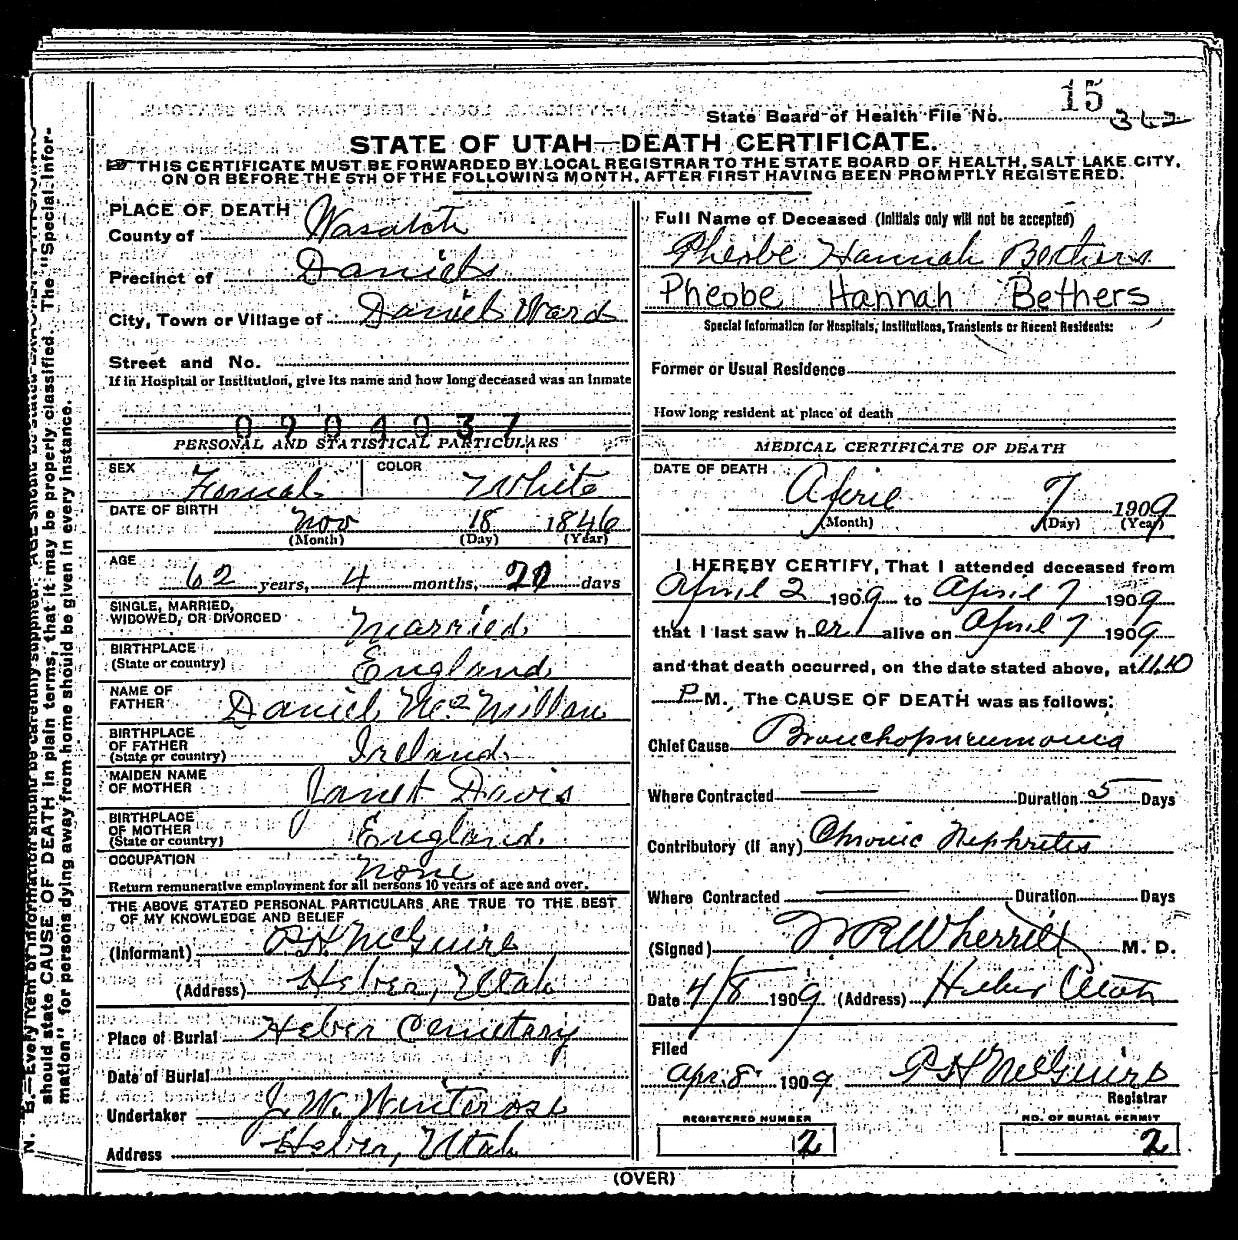 15
State Board of Health File No. 362
STATE OF UTAH—DEATH CERTIFICATE.
THIS CERTIFICATE MUST BE FORWARDED BY LOCAL REGISTRAR TO THE STATE BOARD OF HEALTH, SALT LAKE CITY,
ON OR BEFORE THE 5TH OF THE FOLLOWING MONTH, AFTER FIRST HAVING BEEN PROMPTLY REGISTERED.
PLACE OF DEATH
County of Wasatch
Precinct of Daniels
City, Town or Village of Daniels Ward
Street and No.
If in Hospital or Institution, give its name and how long deceased was an inmate
0904037
PERSONAL AND STATISTICAL PARTICULARS
SEX Femal COLOR White
DATE OF BIRTH Nov 18 1846
(Month) (Day) (Year)
AGE 62 years, 4 months, days
SINGLE, MARRIED,
WIDOWED, OR DIVORCED Married
BIRTHPLACE
(State or country) England
NAME OF
FATHER Daniel McMillan
BIRTHPLACE
OF FATHER
(State or country) Ireland
MAIDEN NAME
OF MOTHER Janet Davis
BIRTHPLACE
OF MOTHER
(State or country) England
OCCUPATION None
Return remunerative employment for all persons 10 years of age and over.
THE ABOVE STATED PERSONAL PARTICULARS ARE TRUE TO THE BEST
OF MY KNOWLEDGE AND BELIEF
(Informant) P H McGuire
(Address) Heber, Utah
Place of Burial Heber Cemetary
Date of Burial
Undertaker J. W. Winterose
Address Heber, Utah
Full Name of Deceased (Initials only will not be accepted)
Pheobe Hannah Bethers
Pheobe Hannah Bethers
Special Information for Hospitals, Institutions, Transients or Recent Residents:
Former or Usual Residence
How long resident at place of death
MEDICAL CERTIFICATE OF DEATH
DATE OF DEATH
April 7 1909
(Month) (Day) (Year)
I HEREBY CERTIFY, That I attended deceased from
April 2 1909 to April 7 1909
that I last saw her alive on April 7 1909
and that death occurred, on the date stated above, at 11.40
P M. The CAUSE OF DEATH was as follows:
Chief Cause Bronchopneumonia
Where Contracted Duration 5 Days
Contributory (if any) Chronic Nephritis
Where Contracted Duration Days
(Signed) W R Wherritt M. D.
Date 4/8 1909 (Address) Heber Utah
Filed
Apr. 8 1909 P H McGuire
Registrar
REGISTERED NUMBER NO. OF BURIAL PERMIT
2 2
(OVER)
N. B.—Every item of information should be carefully supplied. AGE should be stated EXACTLY. PHYSICIANS
should state CAUSE OF DEATH in plain terms, that it may be properly classified. The "Special Infor-
mation" for persons dying away from home should be given in every instance.